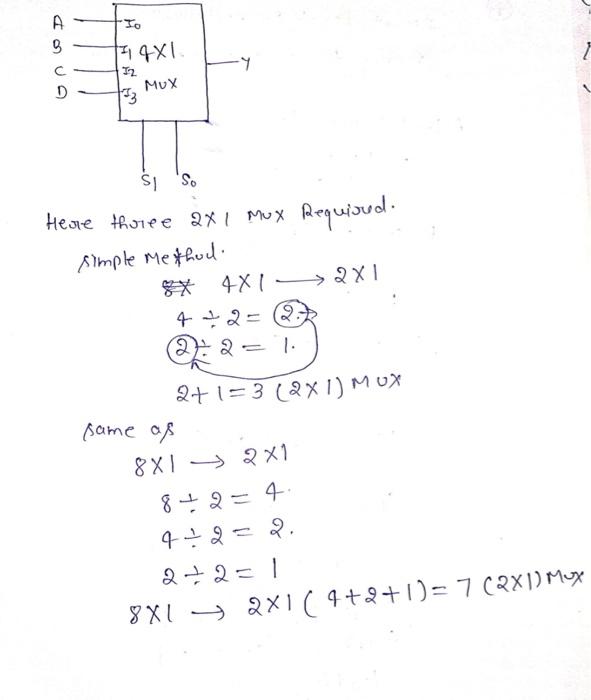 A I0
B I1 4X1
C I2
D I3 MUX
Y
S1 S0
Here three 2X1 MUX Required.
Simple Method.
4X1 → 2X1
4 ÷ 2 = 2
2 ÷ 2 = 1.
2+1=3 (2X1) MUX
Same as
8X1 → 2X1
8 ÷ 2 = 4.
4 ÷ 2 = 2.
2 ÷ 2 = 1
8X1 → 2X1 (4+2+1) = 7 (2X1) MUX